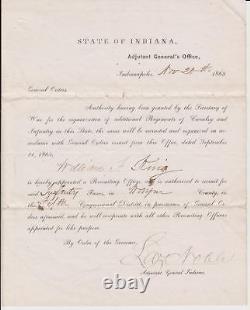 STATE OF INDIANA,
Adjutant General's Office,
Indianapolis, Nov 1863
General Orders
Authority having been granted by the Secretary of
War for the organization of additional Regiments of Cavalry and
Infantry in this State, the same will be recruited and organized in ac-
cordance with General Orders issued from this Office, dated September
William
is hereby appointed a Recruiting Officer, is authorized to recruit for
Infantry in Wayne County, in
the Congressional District, in pursuance of General Or-
ders aforesaid, and he will cooperate with all other Recruiting Officers
appointed for like purpose.
By Order of the Governor,
Laz Noble
Adjutant General Indiana.